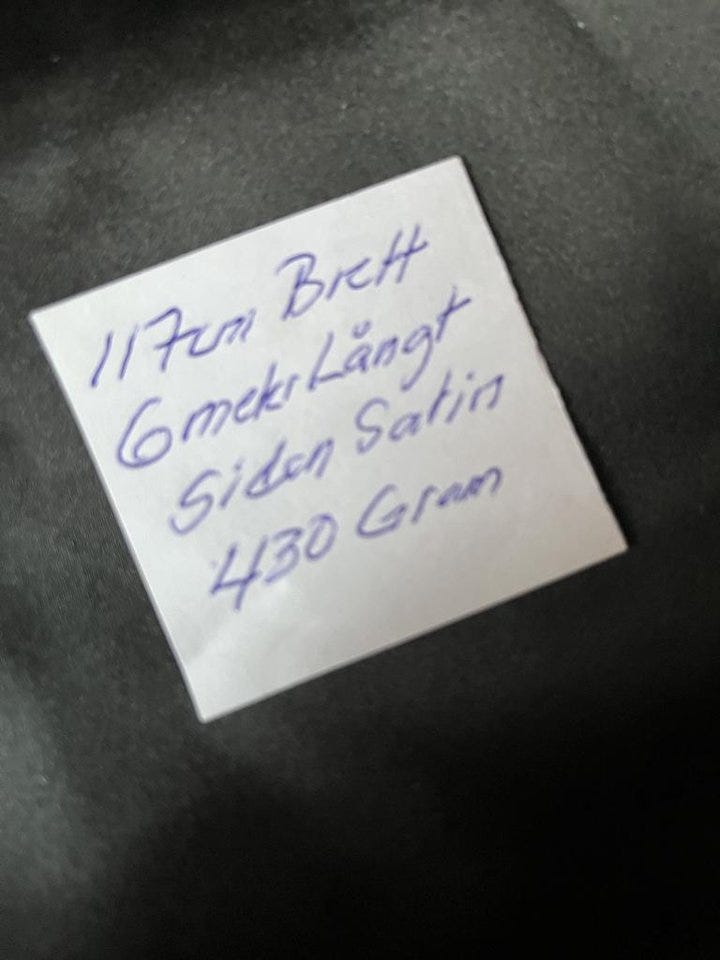 117cm Brett
6meterLångt
Siden Satin
430 Gram